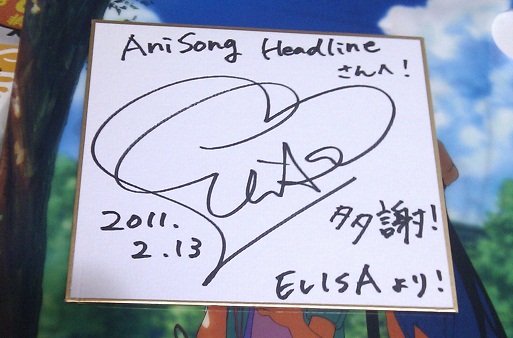 AniSong Headline
さんへ!
ELISA
2011.
2.13
多謝!
ELISAより!